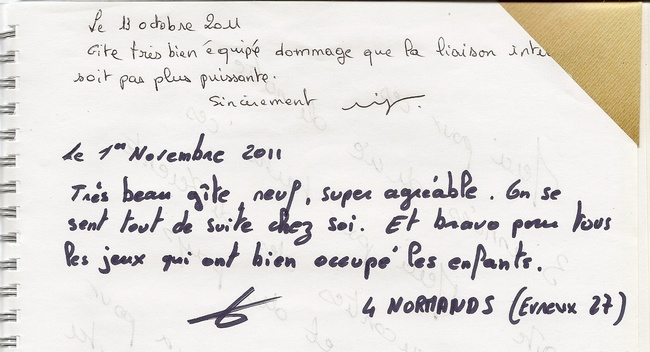 Le 13 octobre 2011
Gîte très bien équipé dommage que la liaison inter
soit pas plus puissante.
Sincèrement
Le 1er Novembre 2011
Très beau gîte, neuf, super agréable. On se
sent tout de suite chez soi. Et bravo pour tous
les jeux qui ont bien occupé les enfants.
4 NORMANDS (Evreux 27)